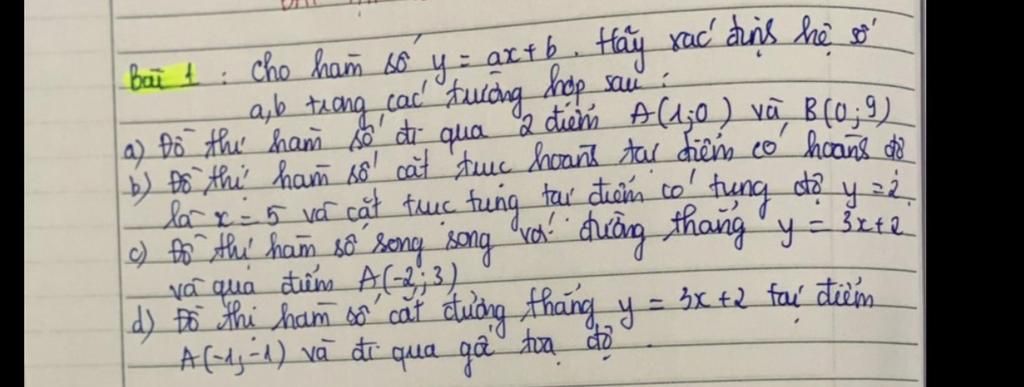 Bài 1 : Cho hàm số y = ax + b. Hãy xác định hệ số
a,b trong các trường hợp sau :
a) Đồ thị hàm số đi qua 2 điểm A(1;0) và B(0;9)
b) Đồ thị hàm số cắt trục hoành tại điểm có hoành độ
là x = 5 và cắt trục tung tại điểm có tung độ y = 2.
c) Đồ thị hàm số song song với đường thẳng y = 3x+2
và qua điểm A(-2;3)
d) Đồ thị hàm số cắt đường thẳng y = 3x+2 tại điểm
A(-1;-1) và đi qua gố toạ độ.